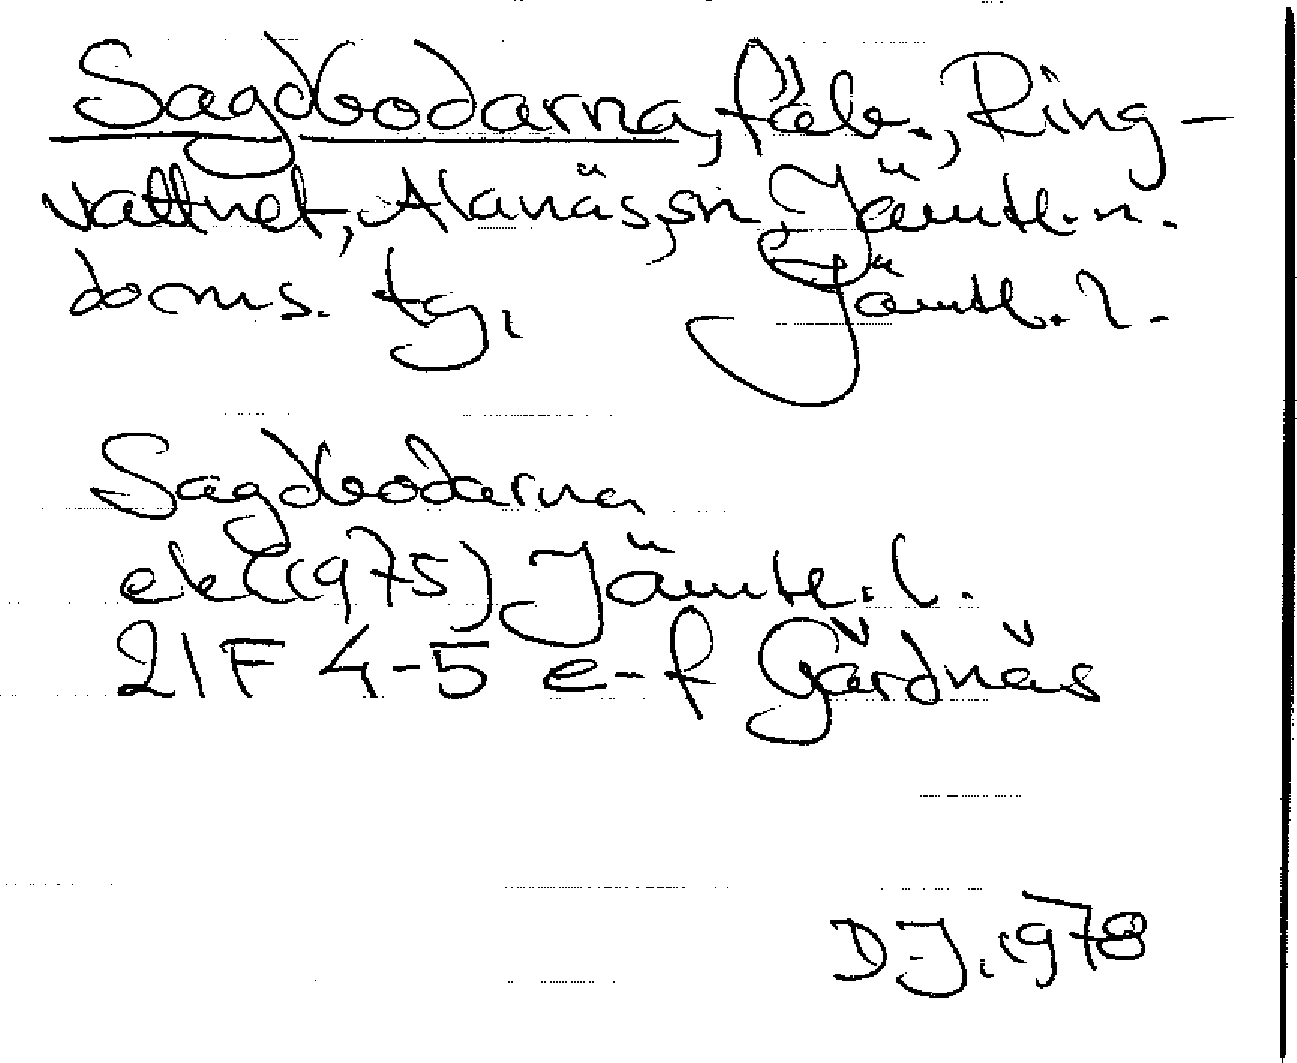 Sagdbodarna, fäb., Ring-
vattnet, Alanäs sn, Jämtl. n.
doms. tg, Jämtl. l.
Sagdbodarna
ek (1975) Jämtl. l.
21F 4-5 e-f Gärdnäs
D-J, 1978